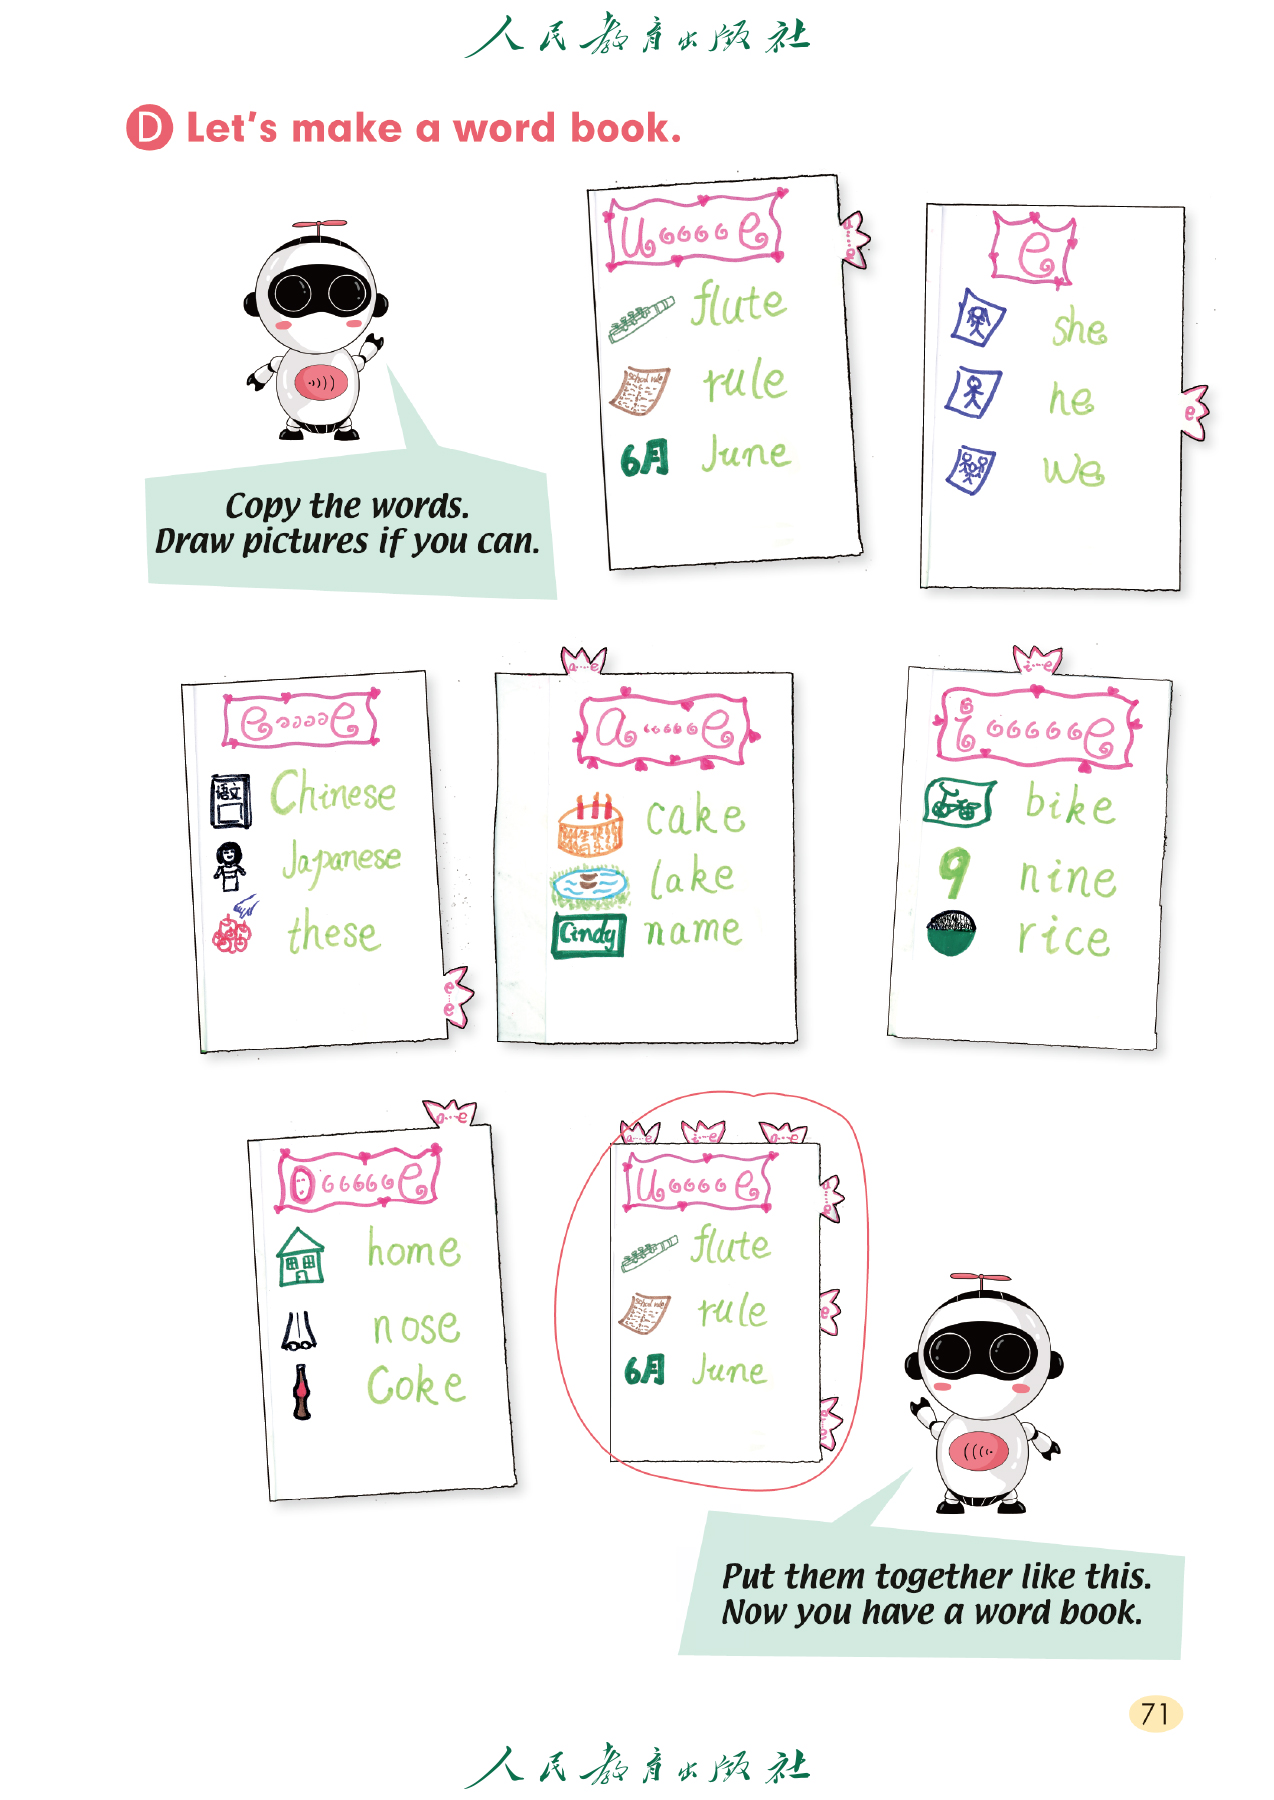 人民教育出版社
D Let's make a word book.
Copy the words.
Draw pictures if you can.
u e
u e
flute
school rule
rule
6月
June
e
she
he
e
we
e e
语文
Chinese
Japanese
these
e e
a e
a e
cake
lake
Cindy
name
i e
i e
bike
9
nine
rice
o e
o e
home
nose
Coke
a e
i e
o e
u e
u e
flute
school rule
rule
e
6月
June
e e
Put them together like this.
Now you have a word book.
71
人民教育出版社